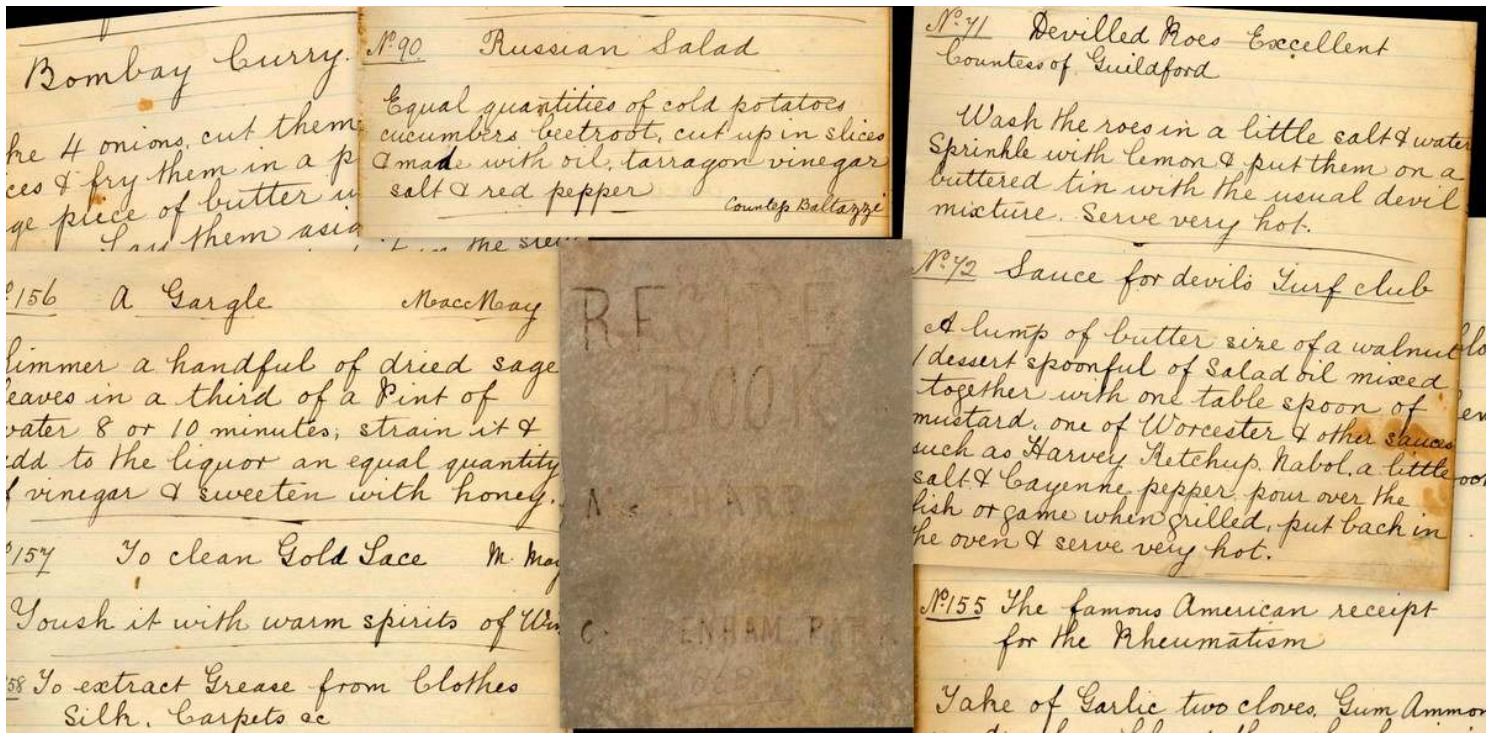 Bombay Curry.
ke 4 onions, cut them
ces & fry them in a p
ge piece of butter
Lay them asid
the sie
No. 90. Russian Salad
Equal quantities of cold potatoes
cucumbers beetroot, cut up in slices
& made with oil, tarragon vinegar
salt & red pepper
Countess Baltazzi
No. 71 Devilled Roes Excellent
Countess of Guildford
Wash the roes in a little salt & water
Sprinkle with lemon & put them on a
buttered tin with the usual devil
mixture. Serve very hot.
No. 72 Sauce for devils Turf club
A lump of butter size of a walnut
1 dessert spoonful of Salad oil mixed
together with one table spoon of
mustard, one of Worcester & other sauces
such as Harvey Ketchup, Nabol, a little
salt & Cayenne pepper, pour over the
fish or game when grilled, put back in
the oven & serve very hot.
156 A Gargle MacMay
immer a handful of dried sage
eaves in a third of a Pint of
water 8 or 10 minutes, strain it &
add to the liquor an equal quantity
f vinegar & sweeten with honey.
157 To clean Gold Lace M. May
Toush it with warm spirits of
58 To extract Grease from Clothes
Silk, Carpets &c
RECIPE
BOOK
ENHAM
No. 155 The famous American receipt
for the Rheumatism
Take of Garlic two cloves, Gum Ammon